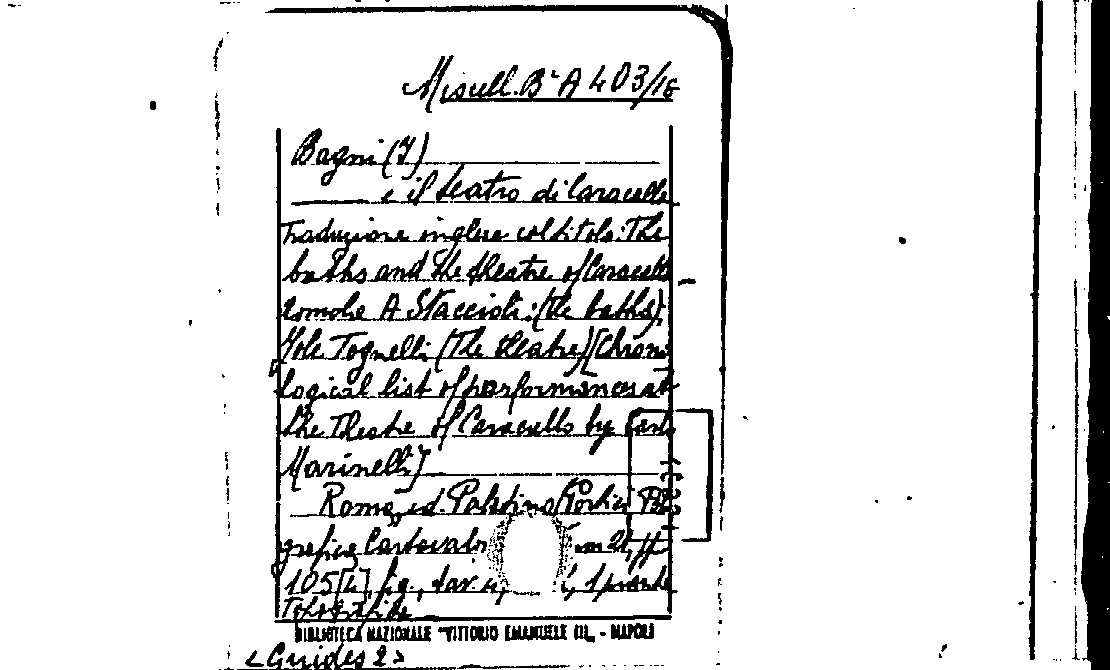 Miscell. Bª A 403/18
Bagni (I)
e il teatro di Caracalla
Traduzione inglese col titolo: The
baths and the theatre of Caracalla
Romolo A Staccioli: (the baths),
Iole Tognelli (The theatre) [Chrono
logical list of performances at
the Theatre of Caracalla by Carlo
Marinelli]
Roma, ed. Palatino
grafica
105 [4], fig., tav.
Topografiche
BIBLIOTECA NAZIONALE "VITTORIO EMANUELE III„ - NAPOLI
<Guides 2>